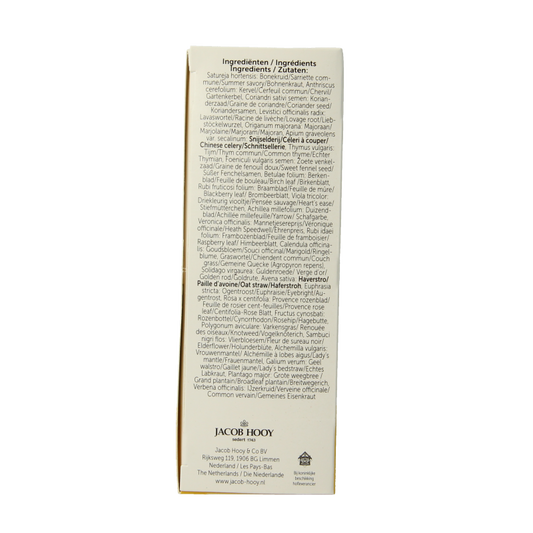 Ingrediënten / Ingrédients
Ingredients / Zutaten:
Satureja hortensis: Bonekruid/Sarriette com-
mune/Summer savory/Bohnenkraut, Anthriscus
cerefolium: Kervel/Cerfeuil commun/Chervil/
Gartenkerbel, Coriandri sativi semen: Korian-
derzaad/Graine de coriandre/Coriander seed/
Koriandersamen, Levistici officinalis radix:
Lavaswortel/Racine de livèche/Lovage root/Lieb-
stöckelwurzel, Origanum majorana: Majoraan/
Marjolaine/Marjoram/Majoran, Apium graveolens
var. secalinum: Snijselderij/Céleri à couper/
Chinese celery/Schnittsellerie, Thymus vulgaris:
Tijm/Thym commun/Common thyme/Echter
Thymian, Foeniculi vulgaris semen: Zoete venkel-
zaad/Graine de fenouil doux/Sweet fennel seed/
Süßer Fenchelsamen, Betulae folium: Berken-
blad/Feuille de bouleau/Birch leaf /Birkenblatt,
Rubi fruticosi folium: Braamblad/Feuille de mûre/
Blackberry leaf/ Brombeerblatt, Viola tricolor:
Driekleurig viooltje/Pensée sauvage/Heart's ease/
Stiefmütterchen, Achillea millefolium: Duizend-
blad/Achillée millefeuille/Yarrow/ Schafgarbe,
Veronica officinalis: Mannetjesereprijs/Véronique
officinale/Heath Speedwell/Ehrenpreis, Rubi idaei
folium: Frambozenblad/Feuille de framboisier/
Raspberry leaf/ Himbeerblatt, Calendula officina-
lis: Goudsbloem/Souci officinal/Marigold/Ringel-
blume, Graswortel/Chiendent commun/Couch
grass/Gemeine Quecke (Agropyron repens),
Solidago virgaurea: Guldenroede/ Verge d'or/
Golden rod/Goldrute, Avena sativa: Haverstro/
Paille d'avoine/Oat straw/Haferstroh, Euphrasia
stricta: Ogentroost/Euphraisie/Eyebright/Au-
gentrost, Rosa x centifolia: Provence rozenblad/
Feuille de rosier cent-feuilles/Provence rose
leaf/Centifolia-Rose Blatt, Fructus cynosbati:
Rozenbottel/Cynorrhodon/Rosehip/Hagebutte,
Polygonum aviculare: Varkensgras/ Renouée
des oiseaux/Knotweed/Vogelknöterich, Sambuci
nigri flos: Vlierbloesem/Fleur de sureau noir/
Elderflower/Holunderblüte, Alchemilla vulgaris:
Vrouwenmantel/ Alchémille à lobes aigus/Lady's
mantle/Frauenmantel, Galium verum: Geel
walstro/Gaillet jaune/Lady's bedstraw/Echtes
Labkraut, Plantago major: Grote weegbree /
Grand plantain/Broadleaf plantain/Breitwegerich,
Verbena officinalis: IJzerkruid/Verveine officinale/
Common vervain/Gemeines Eisenkraut
JACOB HOOY
sedert 1743
Jacob Hooy & Co BV
Rijksweg 119, 1906 BG Limmen
Nederland / Les Pays-Bas
The Netherlands / Die Niederlande
www.jacob-hooy.nl
Bij koninklijke
beschikking
hofleverancier